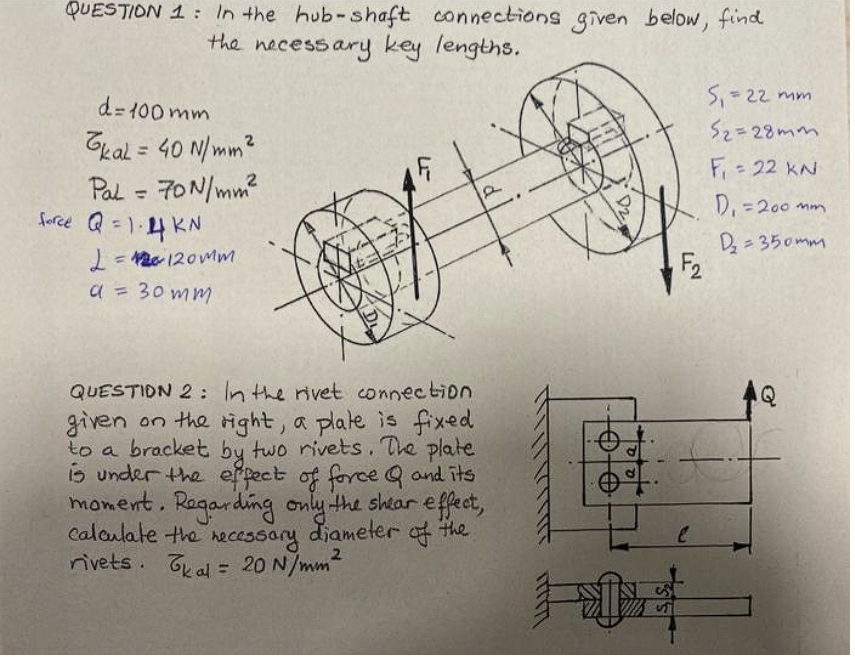 QUESTION 1 : In the hub-shaft connections given below, find
the necessary key lengths.
d=100 mm
τkal = 40 N/mm²
Pal = 70 N/mm²
force Q = 1.4 KN
L = 120mm
a = 30 mm
S₁ = 22 mm
S₂ = 28mm
F₁ = 22 KN
D₁ = 200 mm
D₂ = 350mm
F₁
d
D₂
F₂
D₁
QUESTION 2 : In the rivet connection
given on the right, a plate is fixed
to a bracket by two rivets. The plate
is under the effect of force Q and its
moment. Regarding only the shear effect,
calculate the necessary diameter of the
rivets. τkal = 20 N/mm²
Q
a
a
l
S₂
S₁